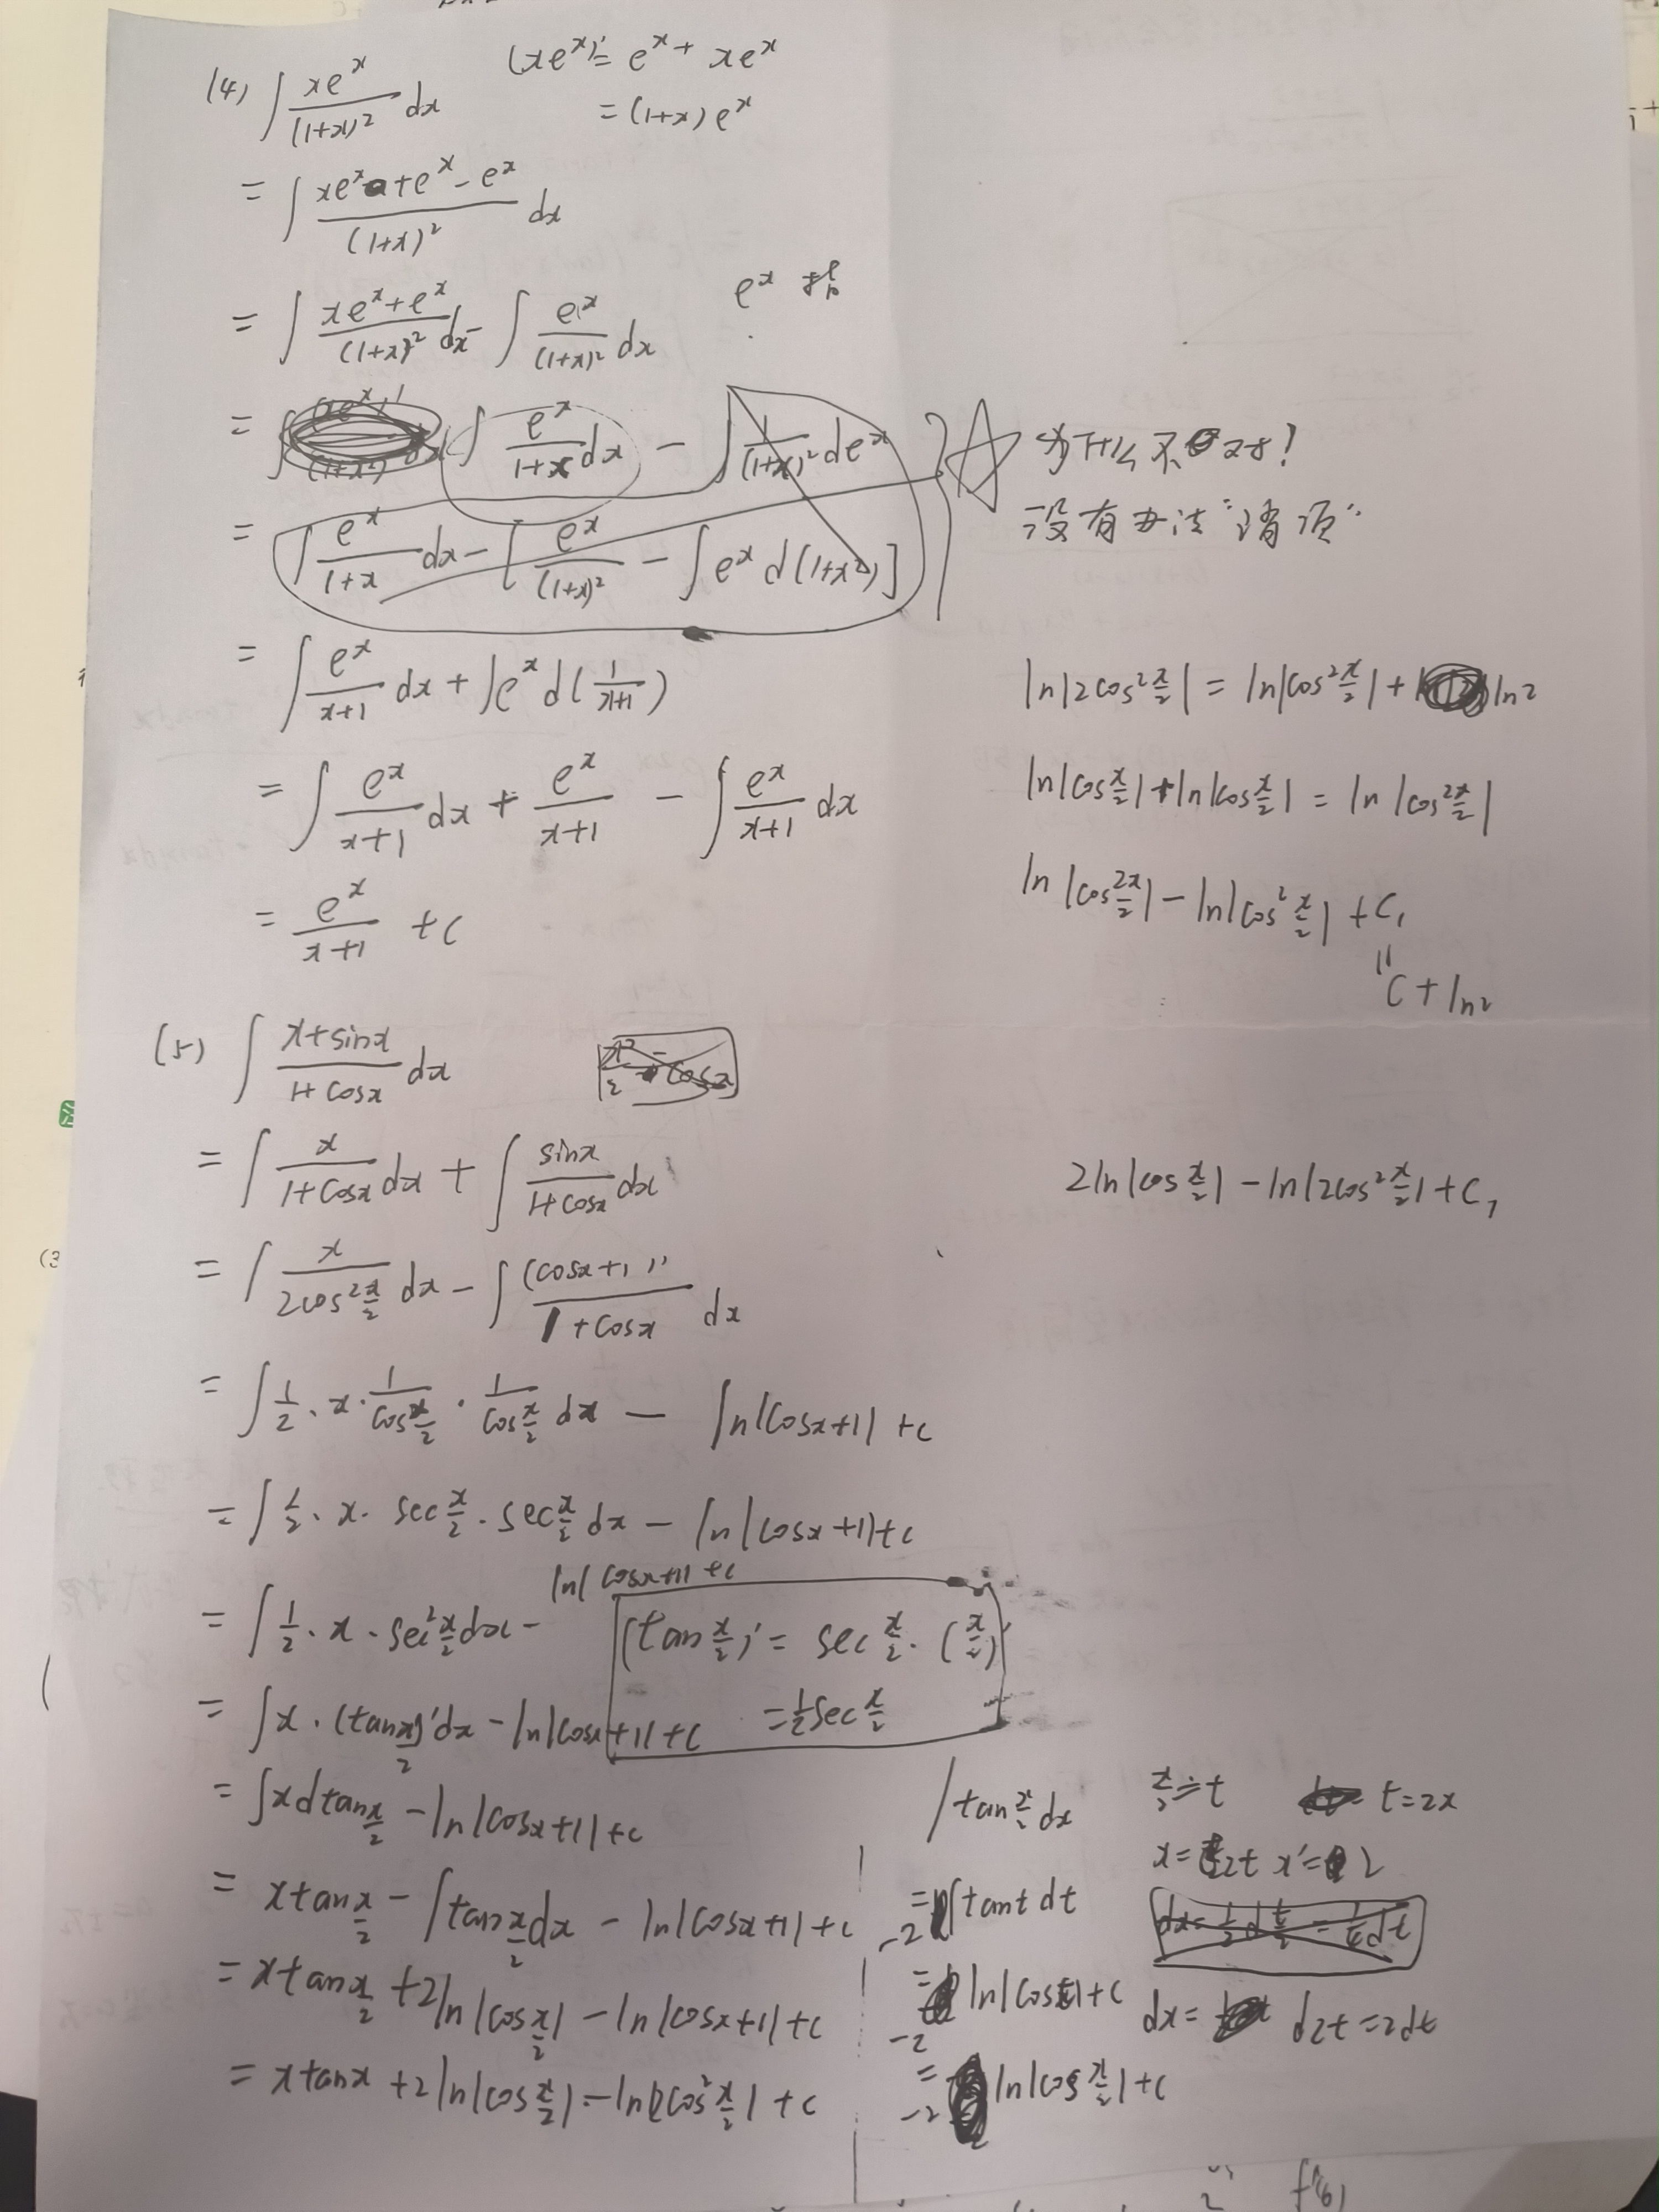 (4) ∫ xe^x/(1+x)² dx
(xe^x)' = e^x + xe^x
= (1+x)e^x
= ∫ (xe^x + e^x - e^x)/(1+x)² dx
= ∫ (xe^x + e^x)/(1+x)² dx - ∫ e^x/(1+x)² dx
e^x
= ∫ e^x/(1+x) dx - ∫ 1/(1+x)² de^x
为什么不对?
= ∫ e^x/(1+x) dx - [ e^x/(1+x)² - ∫ e^x d(1+x²) ]
没有办法"消项"
= ∫ e^x/(x+1) dx + ∫ e^x d(1/(x+1))
= ∫ e^x/(x+1) dx + e^x/(x+1) - ∫ e^x/(x+1) dx
= e^x/(x+1) + C
ln|2cos² x/2| = ln|cos² x/2| + ln2
ln|cos x/2| + ln|cos x/2| = ln|cos² x/2|
ln|cos² x/2| - ln|cos² x/2| + C₁
"
C + ln2
(5) ∫ (x+sinx)/(1+cosx) dx
= ∫ x/(1+cosx) dx + ∫ sinx/(1+cosx) dx
2ln|cos x/2| - ln|2cos² x/2| + C₁
= ∫ x/(2cos² x/2) dx - ∫ (cosx+1)'/(1+cosx) dx
= ∫ 1/2 · x · 1/(cos x/2) · 1/(cos x/2) dx - ln|cosx+1| + C
= ∫ 1/2 · x · sec x/2 · sec x/2 dx - ln|cosx+1| + C
= ∫ 1/2 · x · sec² x/2 dx - ln|cosx+1| + C
(tan x/2)' = sec x/2 · (x/2)'
= 1/2 sec x/2
= ∫ x · (tan x/2)' dx - ln|cosx+1| + C
= ∫ x d tan x/2 - ln|cosx+1| + C
= x tan x/2 - ∫ tan x/2 dx - ln|cosx+1| + C
= x tan x/2 + 2ln|cos x/2| - ln|cosx+1| + C
= x tanx + 2ln|cos x/2| - ln|2cos² x/2| + C
∫ tan x/2 dx
x/2 = t
t = 2x
x = 2t x' = 2
= -2 ∫ tant dt
dx = 1/2 d t/2 = 1/4 dt
= -2 ln|cost| + C
dx = d2t = 2dt
= -2 ln|cos x/2| + C